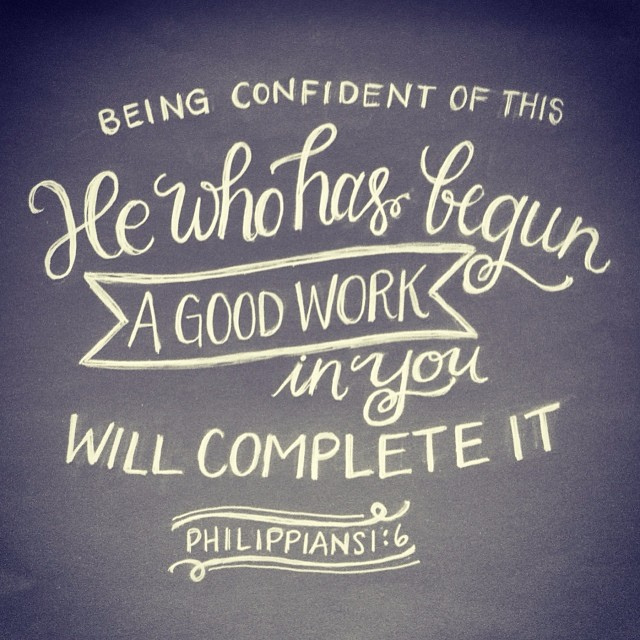 BEING CONFIDENT OF THIS
He who has begun
A GOOD WORK
in you
WILL COMPLETE IT
PHILIPPIANS 1:6